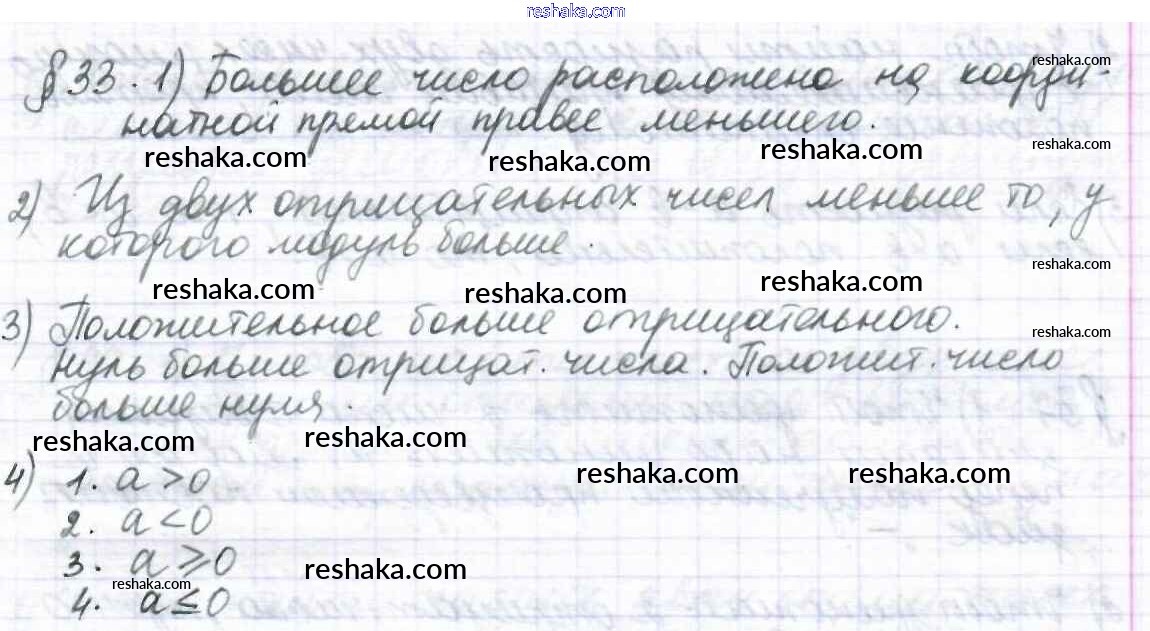 reshaka.com
§ 33. 1) Большее число расположено на коорди-
reshaka.com
натной прямой правее меньшего.
reshaka.com reshaka.com reshaka.com reshaka.com
2) Из двух отрицательных чисел меньше то, у
которого модуль больше.
reshaka.com
reshaka.com reshaka.com reshaka.com
3) Положительное больше отрицательного.
reshaka.com
Нуль больше отрицат. числа. Положит. число
больше нуля.
reshaka.com reshaka.com
4) 1. a > 0
reshaka.com reshaka.com
2. a < 0
3. a ⩾ 0
reshaka.com
reshaka.com
4. a ≤ 0